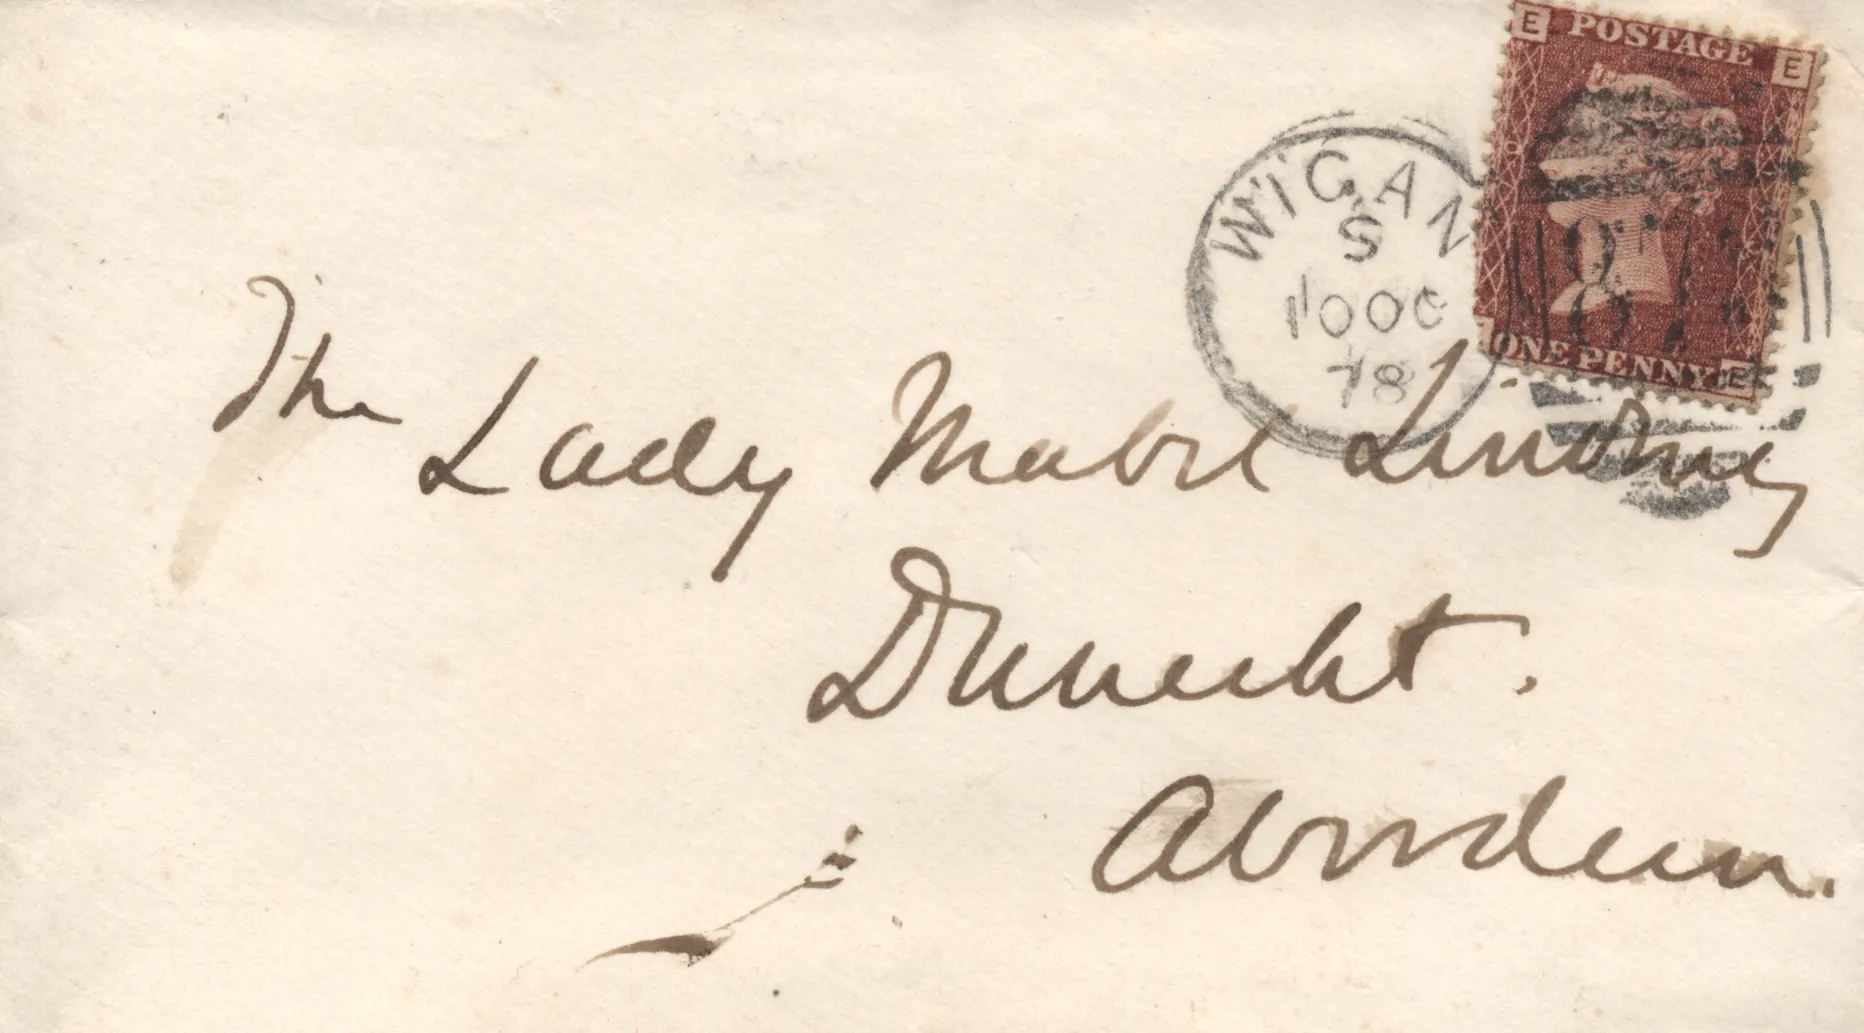 E POSTAGE E
WIGAN
S
10 OC
78
ONE PENNY E
The
Lady Mabel Lindsay
Dunecht.
Aberdeen.